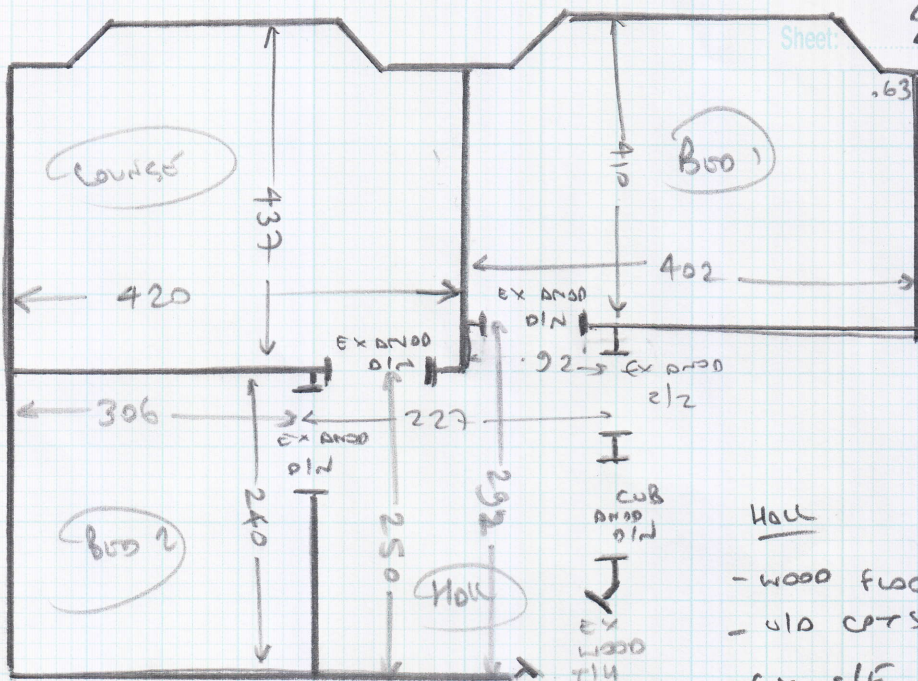 Sheet:
.63
LOUNGE
437
420
BED 1
410
402
EX ANOD
D/N
EX ANOD
D/N
.92
EX ANOD
2/2
306
227
EX ANOD
D/N
BED 2
240
250
292
HALL
CUB
ANOD
D/N
EX
WOOD
HALL
- WOOD FLOO
- U/D CPTS